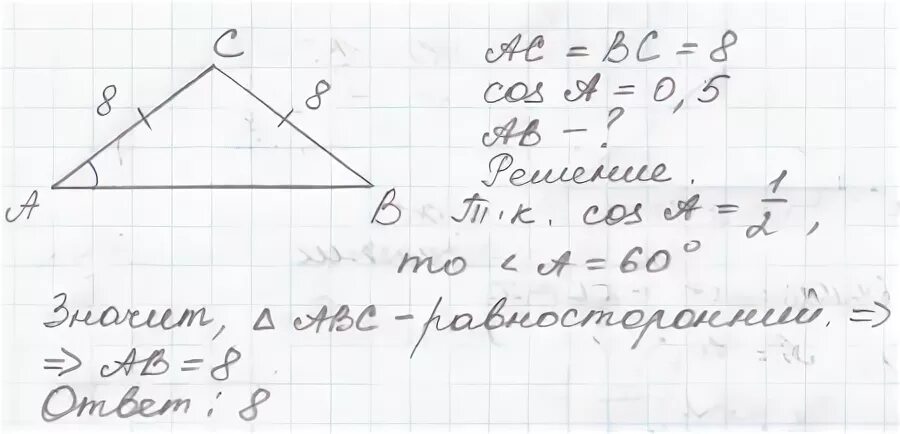 C
8
8
A
B
AC = BC = 8
cos A = 0,5
AB - ?
Решение.
Т.к. cos A = 1/2,
то < A = 60°
Значит, Δ ABC - равносторонний. =>
=> AB = 8
Ответ: 8